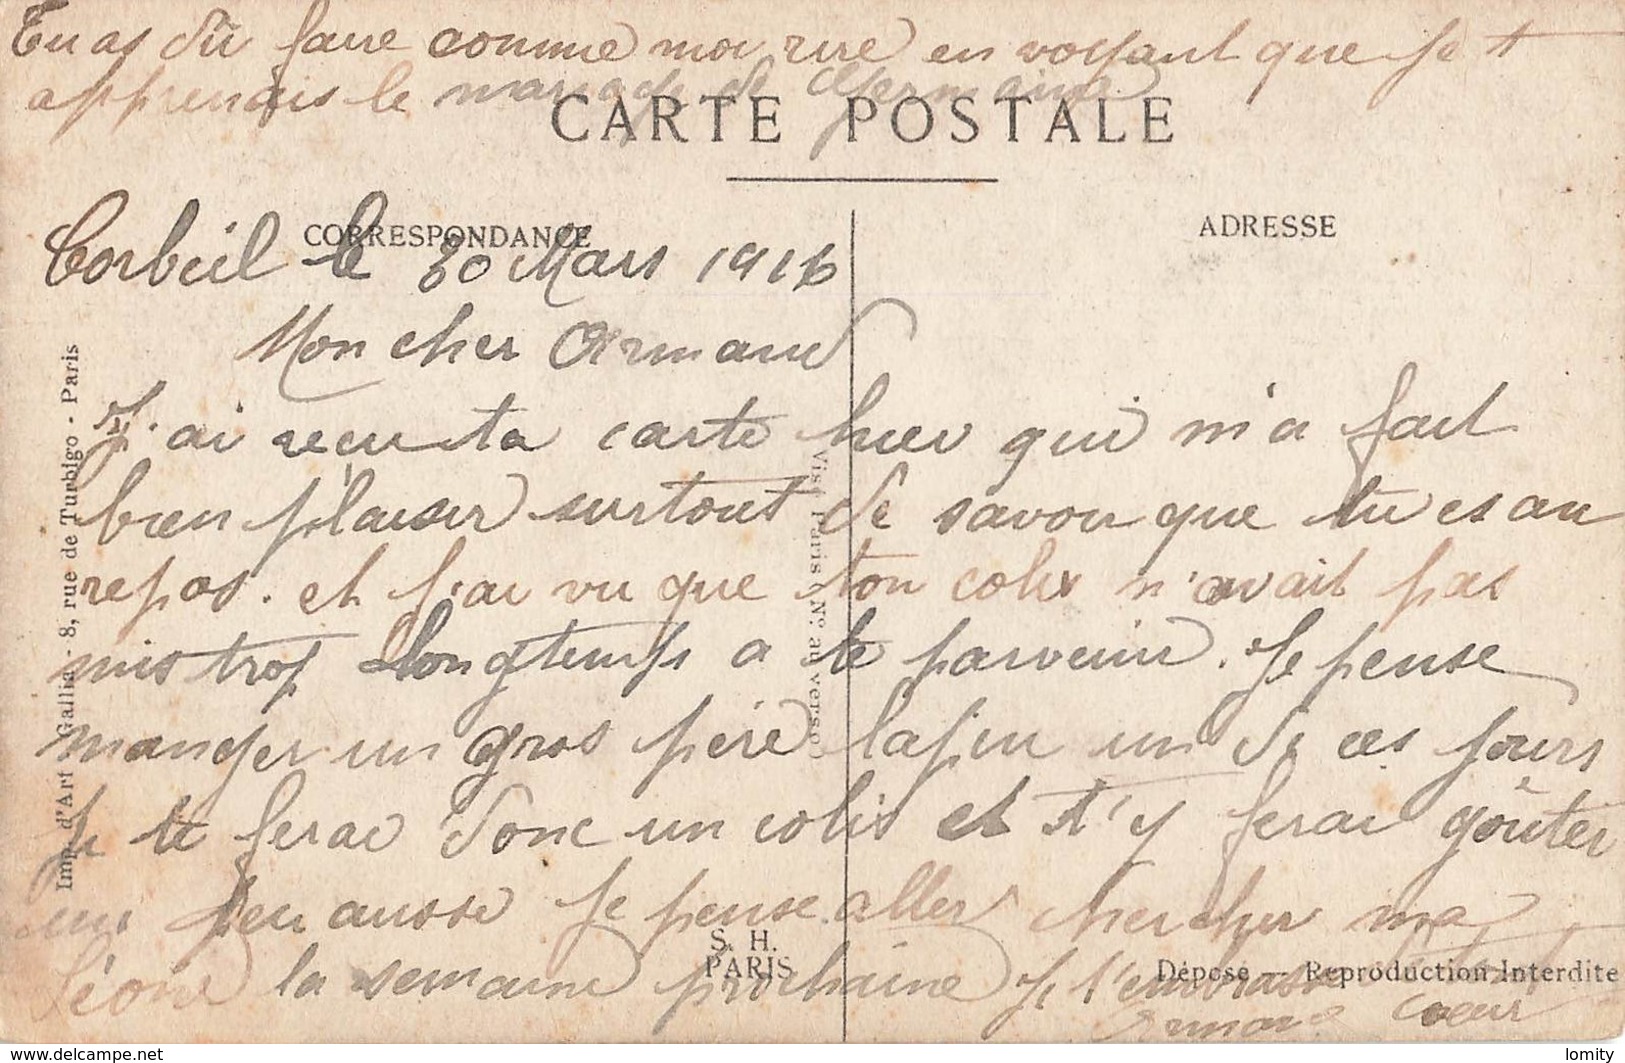 Tu as dû faire comme moi rire en voyant que je t
apprenais le mariage de Germaine
CARTE POSTALE
CORRESPONDANCE
ADRESSE
Corbeil le 30 Mars 1916
Mon cher Armand
J'ai reçu ta carte hier qui m'a fait
bien plaisir surtout de savoir que tu es au
repos. et j'ai vu que ton colis n'avait pas
mis trop longtemps a te parvenir. Je pense
manger un gros père lapin un de ces jours
je te ferai donc un colis et t'y ferai goûter
un peu aussi je pense aller chercher ma
Léone la semaine prochaine je t'embrasse de tout
coeur
Imp. d'Art Gallia - 8, rue de Turbigo - Paris
Visé Paris (N° au verso)
S. H.
PARIS
Déposé — Reproduction Interdite
https://www.delcampe.net
lomity